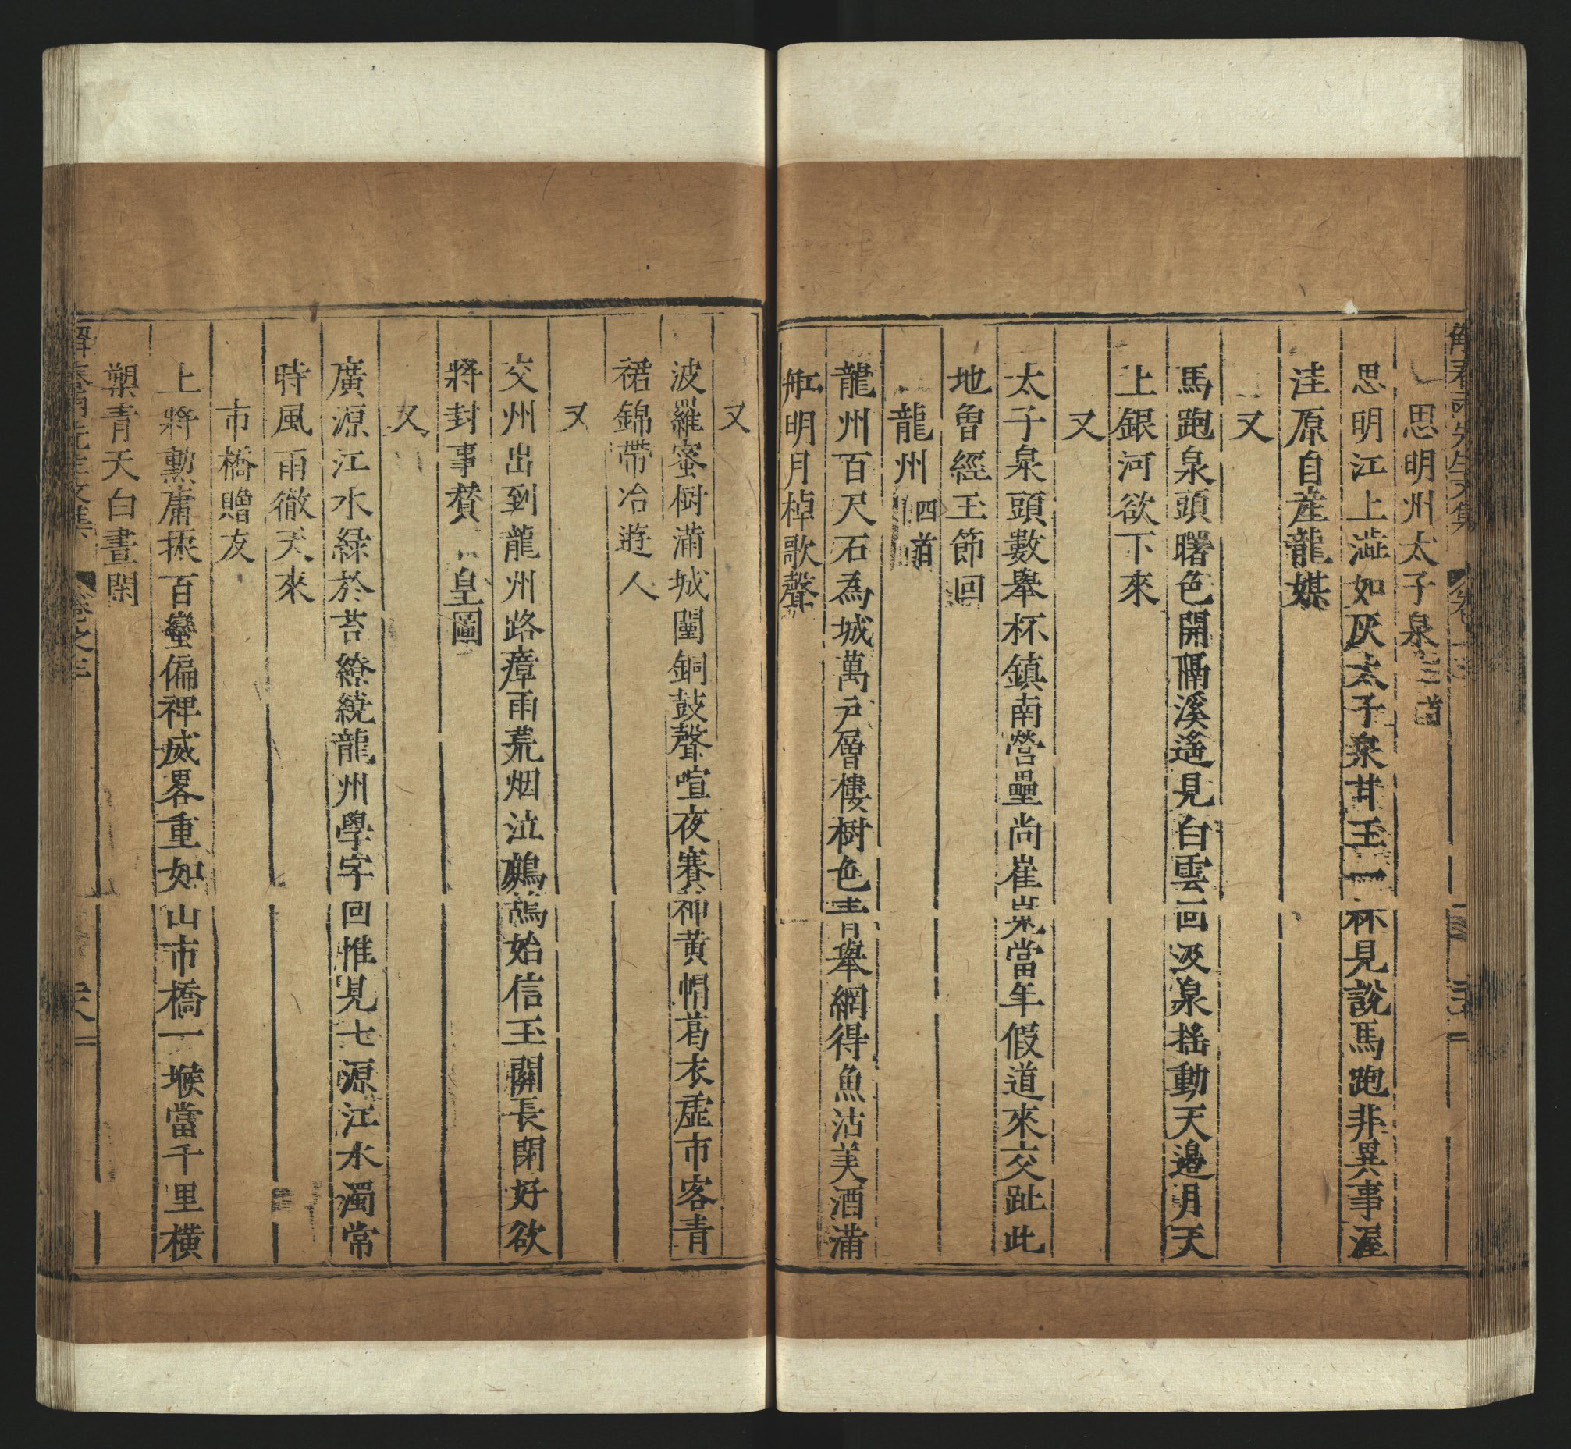 思明州太子泉三首
思明江上澁如灰太子泉甘玉一杯見說馬跑非異事渥
洼原自產龍媒
又
馬跑泉頭曙色開隔溪遙見白雲回汲泉搖動天邊月天
上銀河欲下來
又
太子泉頭數舉杯鎮南營壘尚崔嵬當年假道來交趾此
地曾經玉節回
龍州四首
龍州百尺石為城萬戶層樓樹色青舉網得魚沽美酒滿
舡明月棹歌聲
又
波羅蜜樹滿城闉銅鼓聲喧夜賽神黃帽葛衣虛市客青
裙錦帶冶遊人
又
交州出到龍州路瘴雨荒烟泣鷓鴣始信玉關長閉好欲
將封事賛皇圖
又
廣源江水綠於苔繚繞龍州學字回惟見七源江水濁常
時風雨徹天來
市橋贈友
上將勳庸振百蠻偏裨威畧重如山市橋一堠當千里橫
槊青天白晝閑